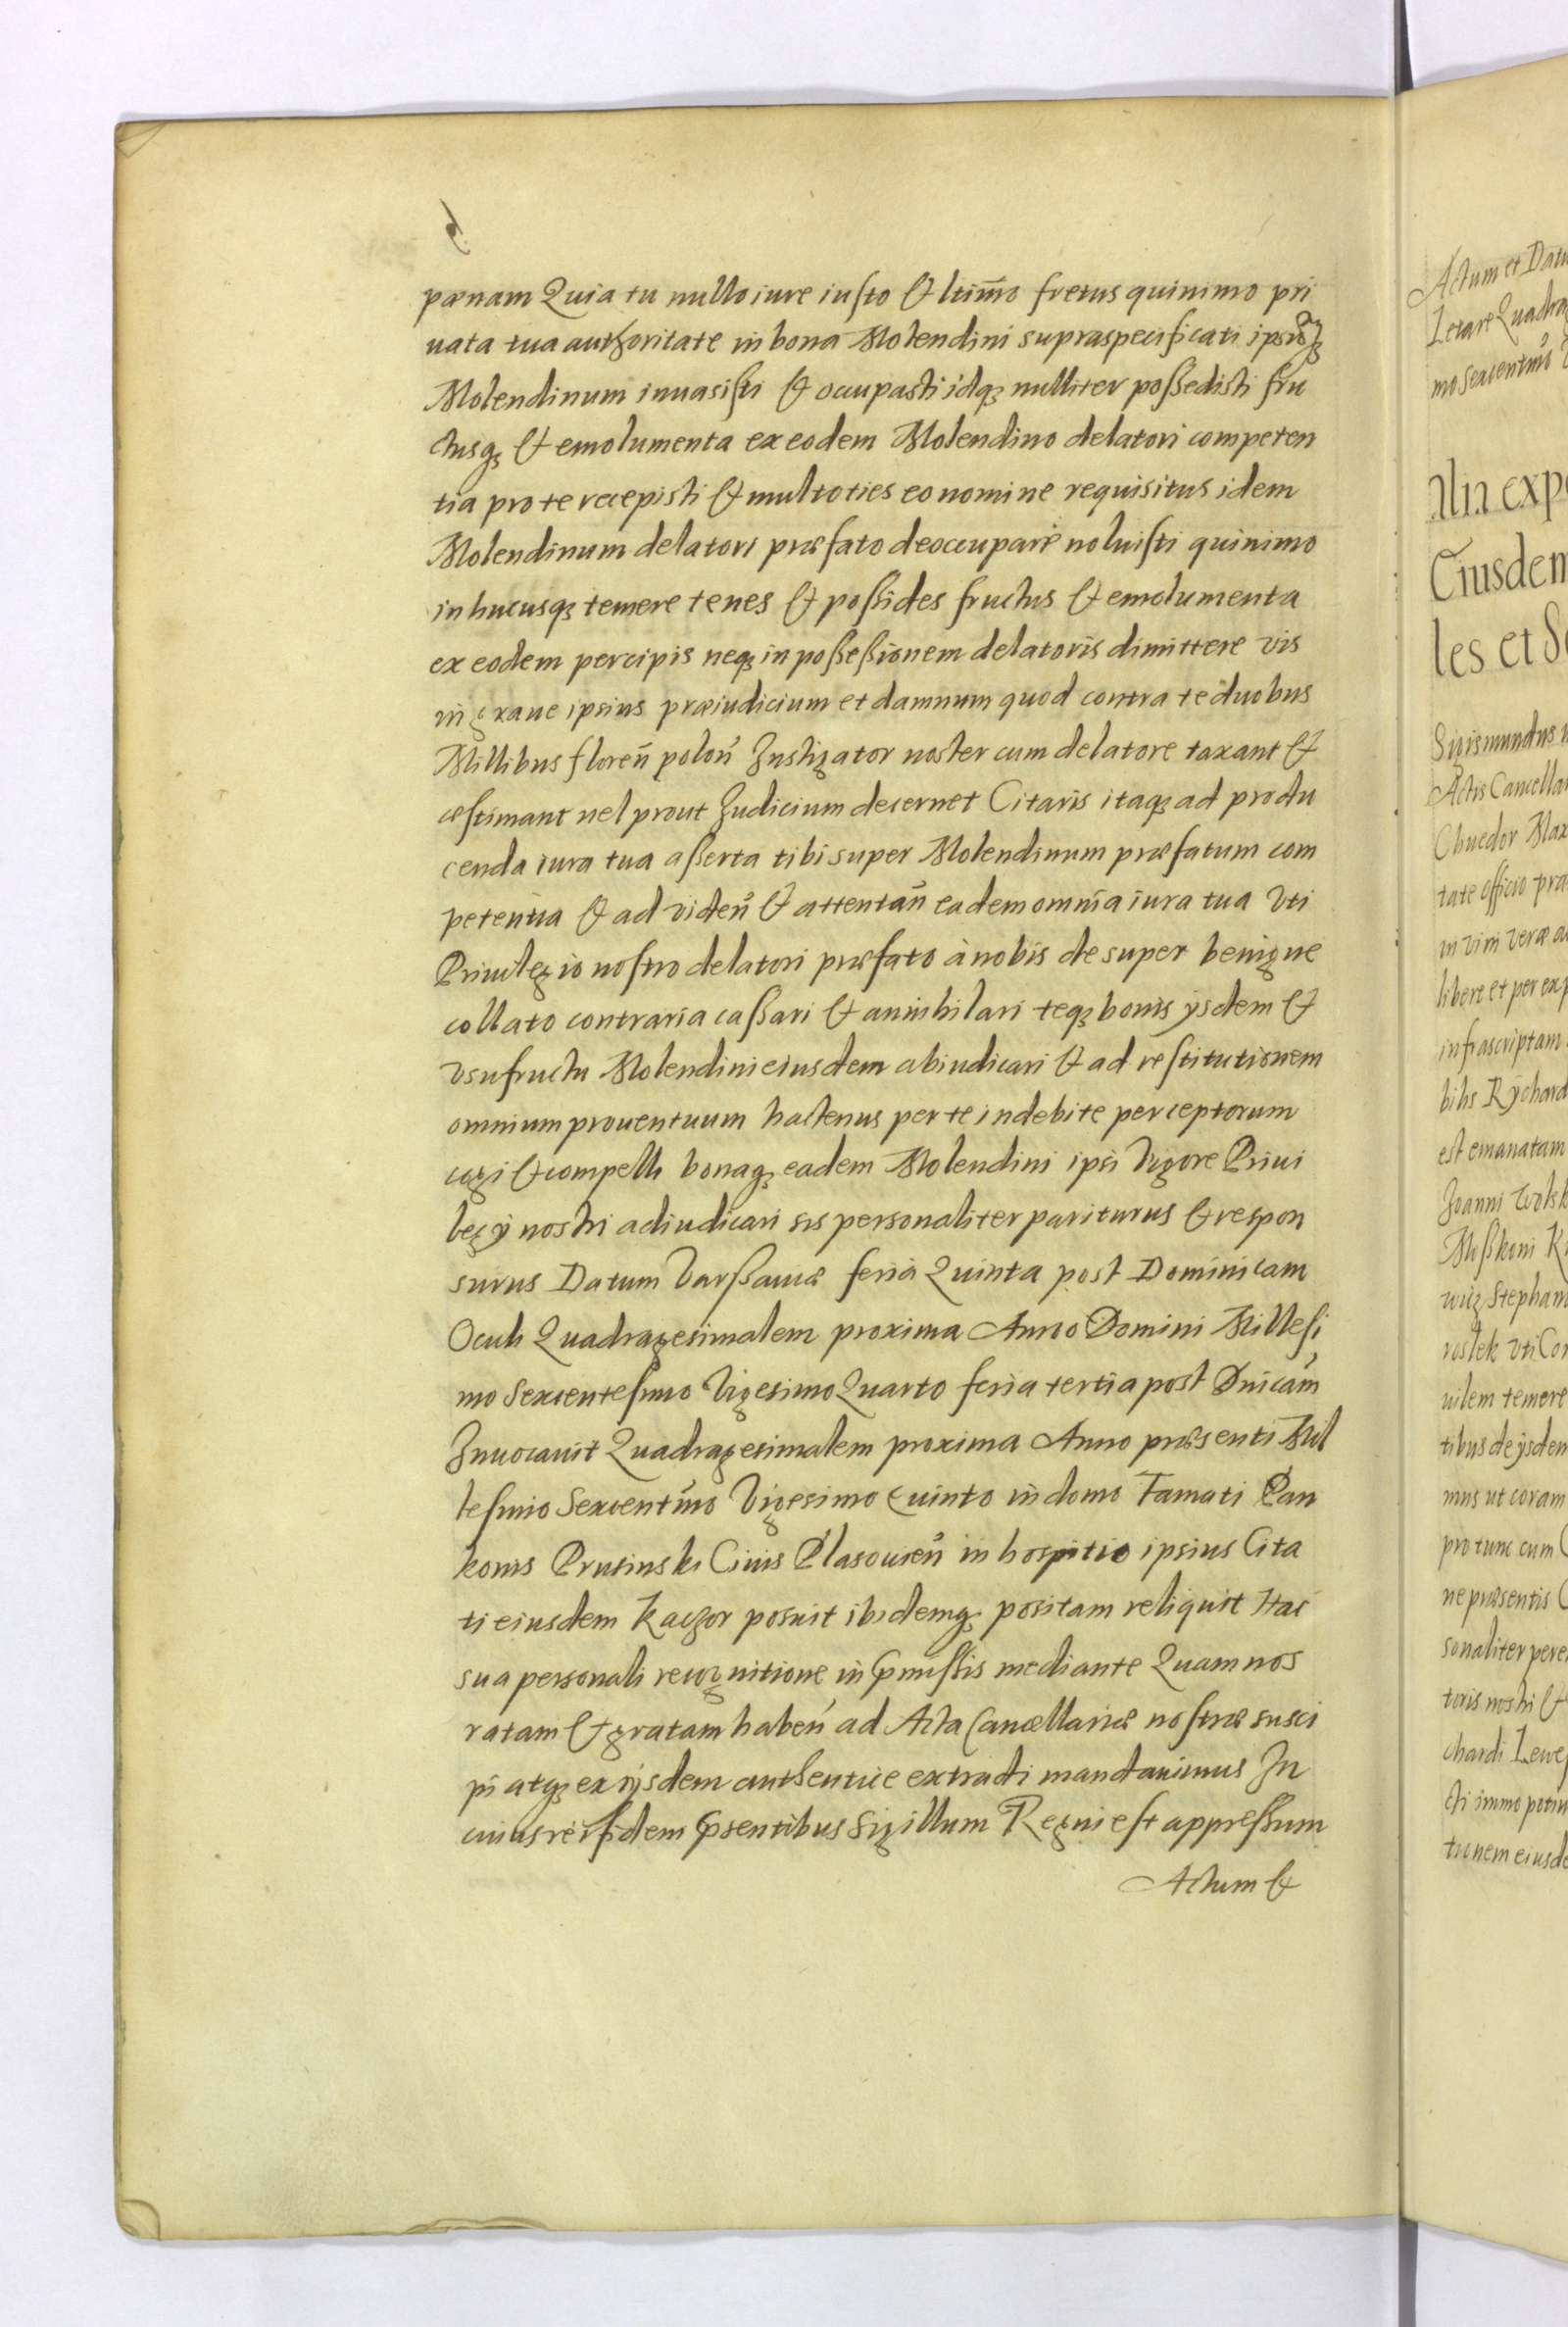 pænam Quia tu nullo iure iusto & ltim̃o fretus quinimo pri
uata tua authoritate in bona Molendini supraspecificati ipsoq3
Molendinum inuasisti & occupasti idq3 nulliter possedisti fru
ctusq3 & emolumenta ex eodem Molendino delatori competen
tia pro te recepisti & multoties eo nomine requisitus idem
Molendinum delatori præfato deoccupare noluisti quinimo
in hucusq3 temere tenes & possides fructus & emolumenta
ex eodem percipis neq3 in possessionem delatoris dimittere vis
in graue ipsius præiudicium et damnum quod contra te duobus
Millibus floreñ poloñ Instigator noster cum delatore taxant &
æstimant uel prout Iudicium decernet Citaris itaq3 ad produ
cenda iura tua asserta tibi super Molendinum præfatum com
petentia & ad videñ & attentañ eadem omnia iura tua Vti
Priuilegio nostro delatori præfato à nobis de super benigne
collato contraria cassari & annihilari teq3 bonis ÿsdem &
vsufructu Molendini eiusdem abiudicari & ad restitutionem
omnium prouentuum hactenus per te indebite perceptorum
cogi & compelli bonaq3 eadem Molendini ipsi Vigore Priui
legÿ nostri adiudicari sis personaliter pariturus & respon
surus Datum Varssauiæ feria Quinta post Dominicam
Oculi Quadragesimalem proxima Anno Domini Millesi
mo Sexcentesimo Vigesimo Quarto feria tertia post Dnicam
Inuocauit Quadragesimalem proxima Anno præsenti Mil
lesimo Sexcentmo Vigesimo Quinto in domo Famati Pan
konis Prusinski Ciuis Plasouieñ in hospitio ipsius Cita
ti eiusdem Kaczor posuit ibidemq3 positam reliquit Hac
sua personali recognitione in Pmissis mediante Quam nos
ratam & gratam habeñ ad Acta Cancellariæ nostræ susci
pi atq3 ex ijsdem authentice extradi mandauimus In
cuius rei fidem Psentibus Sigillum Regni est appressum
Actum &

Actum et Datu
Letare Quadra
mo Sexcentmo
Alia exp
Eiusdem
les et
Sigismundus
Actis Cancella
Chuedor Max
tate officio præ
in vim veræ a
libere et per exp
infrascriptam
bilis Rÿchard
est emanatam
Joanni Wolsk
Stephan
rostek vti Cor
uilem temere
tibus de ÿsdem
mus ut coram
pro tunc cum
ne præsentis
sonaliter pere
toris nostri &
chardi Lewe
cti immo potiu
tionem eiusde